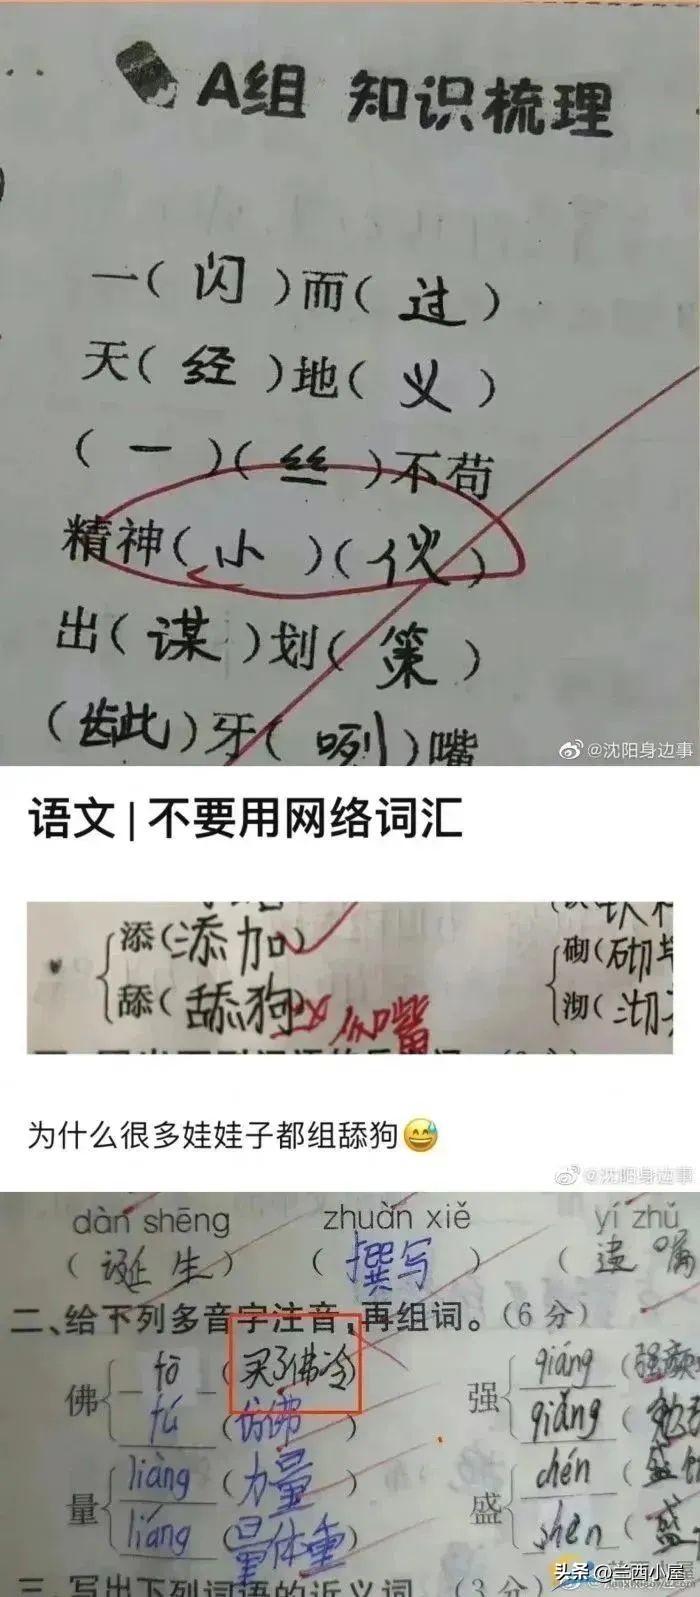 A组 知识梳理
一(闪)而(过)
天(经)地(义)
(一)(丝)不苟
精神(小)(伙)
出(谋)划(策)
(龇)牙(咧)嘴
@沈阳身边事
语文|不要用网络词汇
添(添加)
舔(舔狗)
砌(砌
沏(沏
为什么很多娃娃子都组舔狗😅
@沈阳身边事
dàn shēng zhuàn xiě yí zhǔ
(诞生) (撰写) (遗嘱
二、给下列多音字注音,再组词。(6分)
佛 fó (买了佛冷)
fú (仿佛)
强 qiáng (强
qiǎng (勉
量 liàng (力量)
liáng (量体重)
盛 chén (盛
shen (盛
三、写出下列词语的近义词。(3分)
头条 @兰西小屋